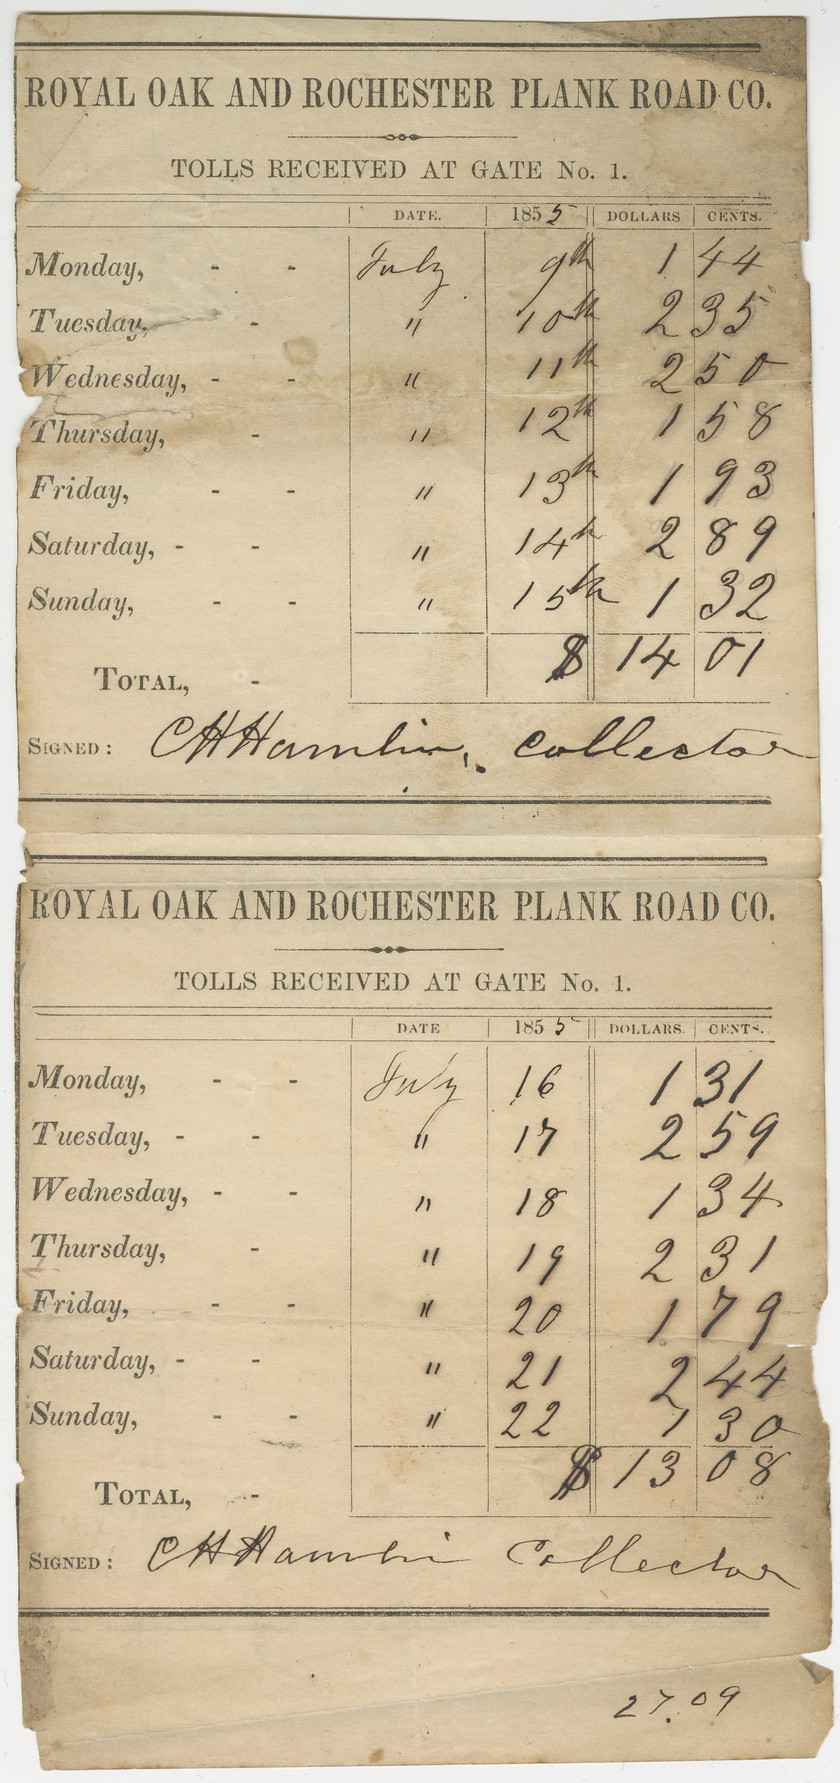 ROYAL OAK AND ROCHESTER PLANK ROAD CO.
TOLLS RECEIVED AT GATE No. 1.
DATE. 1855 DOLLARS CENTS.
Monday, - - July 9th 1 44
Tuesday, - " 10th 2 35
Wednesday, - - " 11th 2 50
Thursday, - " 12th 1 58
Friday, - - " 13th 1 93
Saturday, - - " 14th 2 89
Sunday, - - " 15th 1 32
TOTAL, - $ 14 01
SIGNED: C H Hamlin, Collector
ROYAL OAK AND ROCHESTER PLANK ROAD CO.
TOLLS RECEIVED AT GATE No. 1.
DATE 1855 DOLLARS. CENTS.
Monday, - - July 16 1 31
Tuesday, - - " 17 2 59
Wednesday, - - " 18 1 34
Thursday, - " 19 2 31
Friday, - - " 20 1 79
Saturday, - - " 21 2 44
Sunday, - - " 22 1 30
TOTAL, - $ 13 08
SIGNED: C H Hamlin Collector
27.09